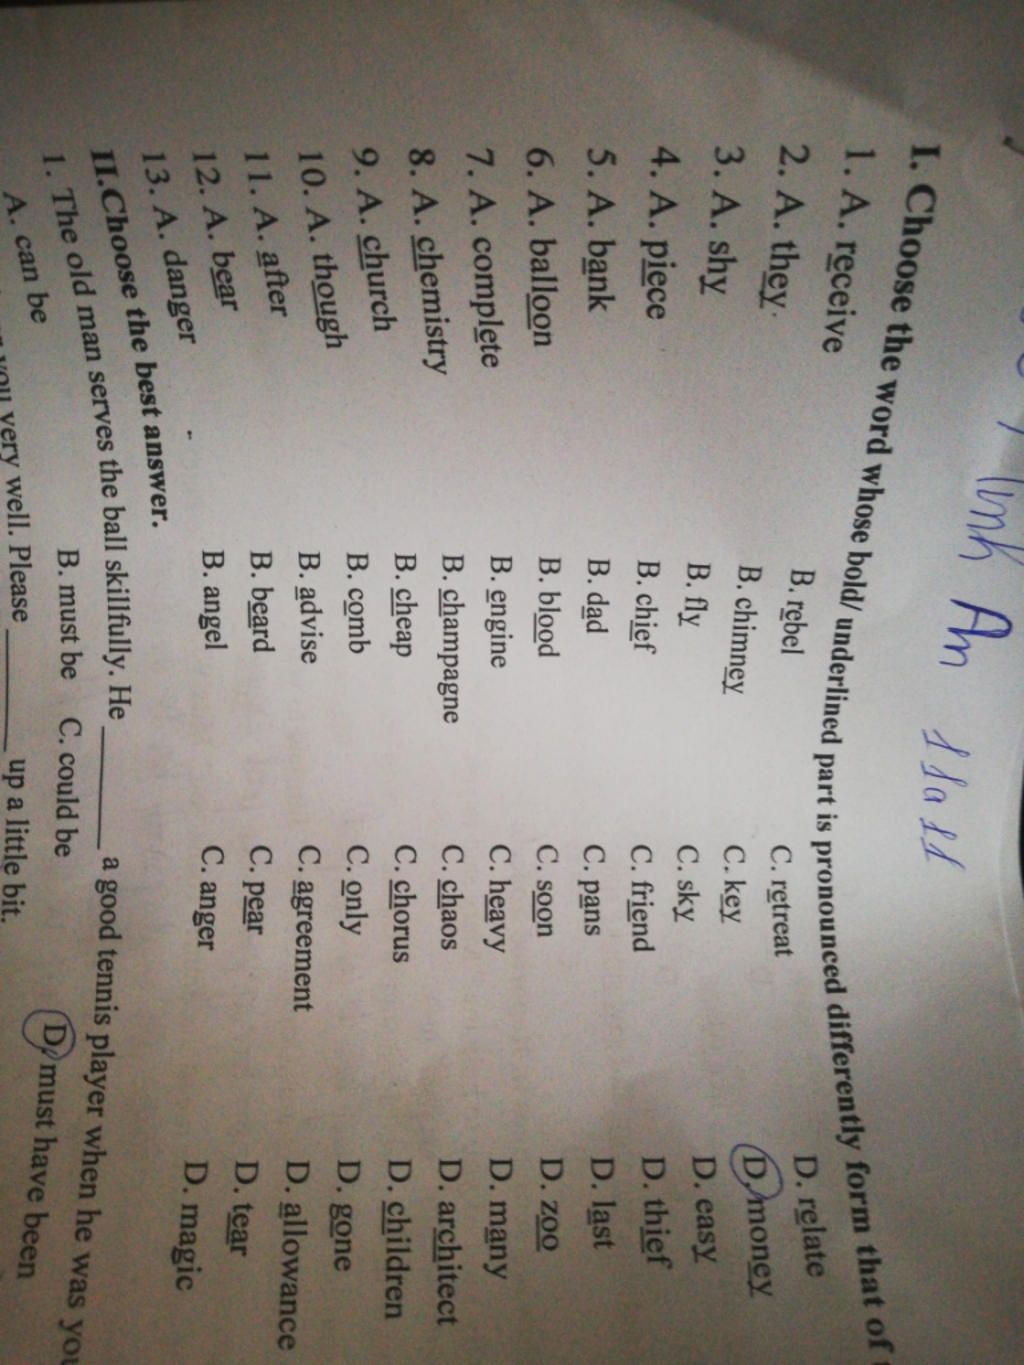 linh An 11a11
I. Choose the word whose bold/ underlined part is pronounced differently form that of
1. A. receive B. rebel C. retreat D. relate
2. A. they B. chimney C. key D. money
3. A. shy B. fly C. sky D. easy
4. A. piece B. chief C. friend D. thief
5. A. bank B. dad C. pans D. last
6. A. balloon B. blood C. soon D. zoo
7. A. complete B. engine C. heavy D. many
8. A. chemistry B. champagne C. chaos D. architect
9. A. church B. cheap C. chorus D. children
10. A. though B. comb C. only D. gone
11. A. after B. advise C. agreement D. allowance
12. A. bear B. beard C. pear D. tear
13. A. danger B. angel C. anger D. magic
II.Choose the best answer.
1. The old man serves the ball skillfully. He ________ a good tennis player when he was you
A. can be B. must be C. could be D. must have been
you very well. Please ________ up a little bit.